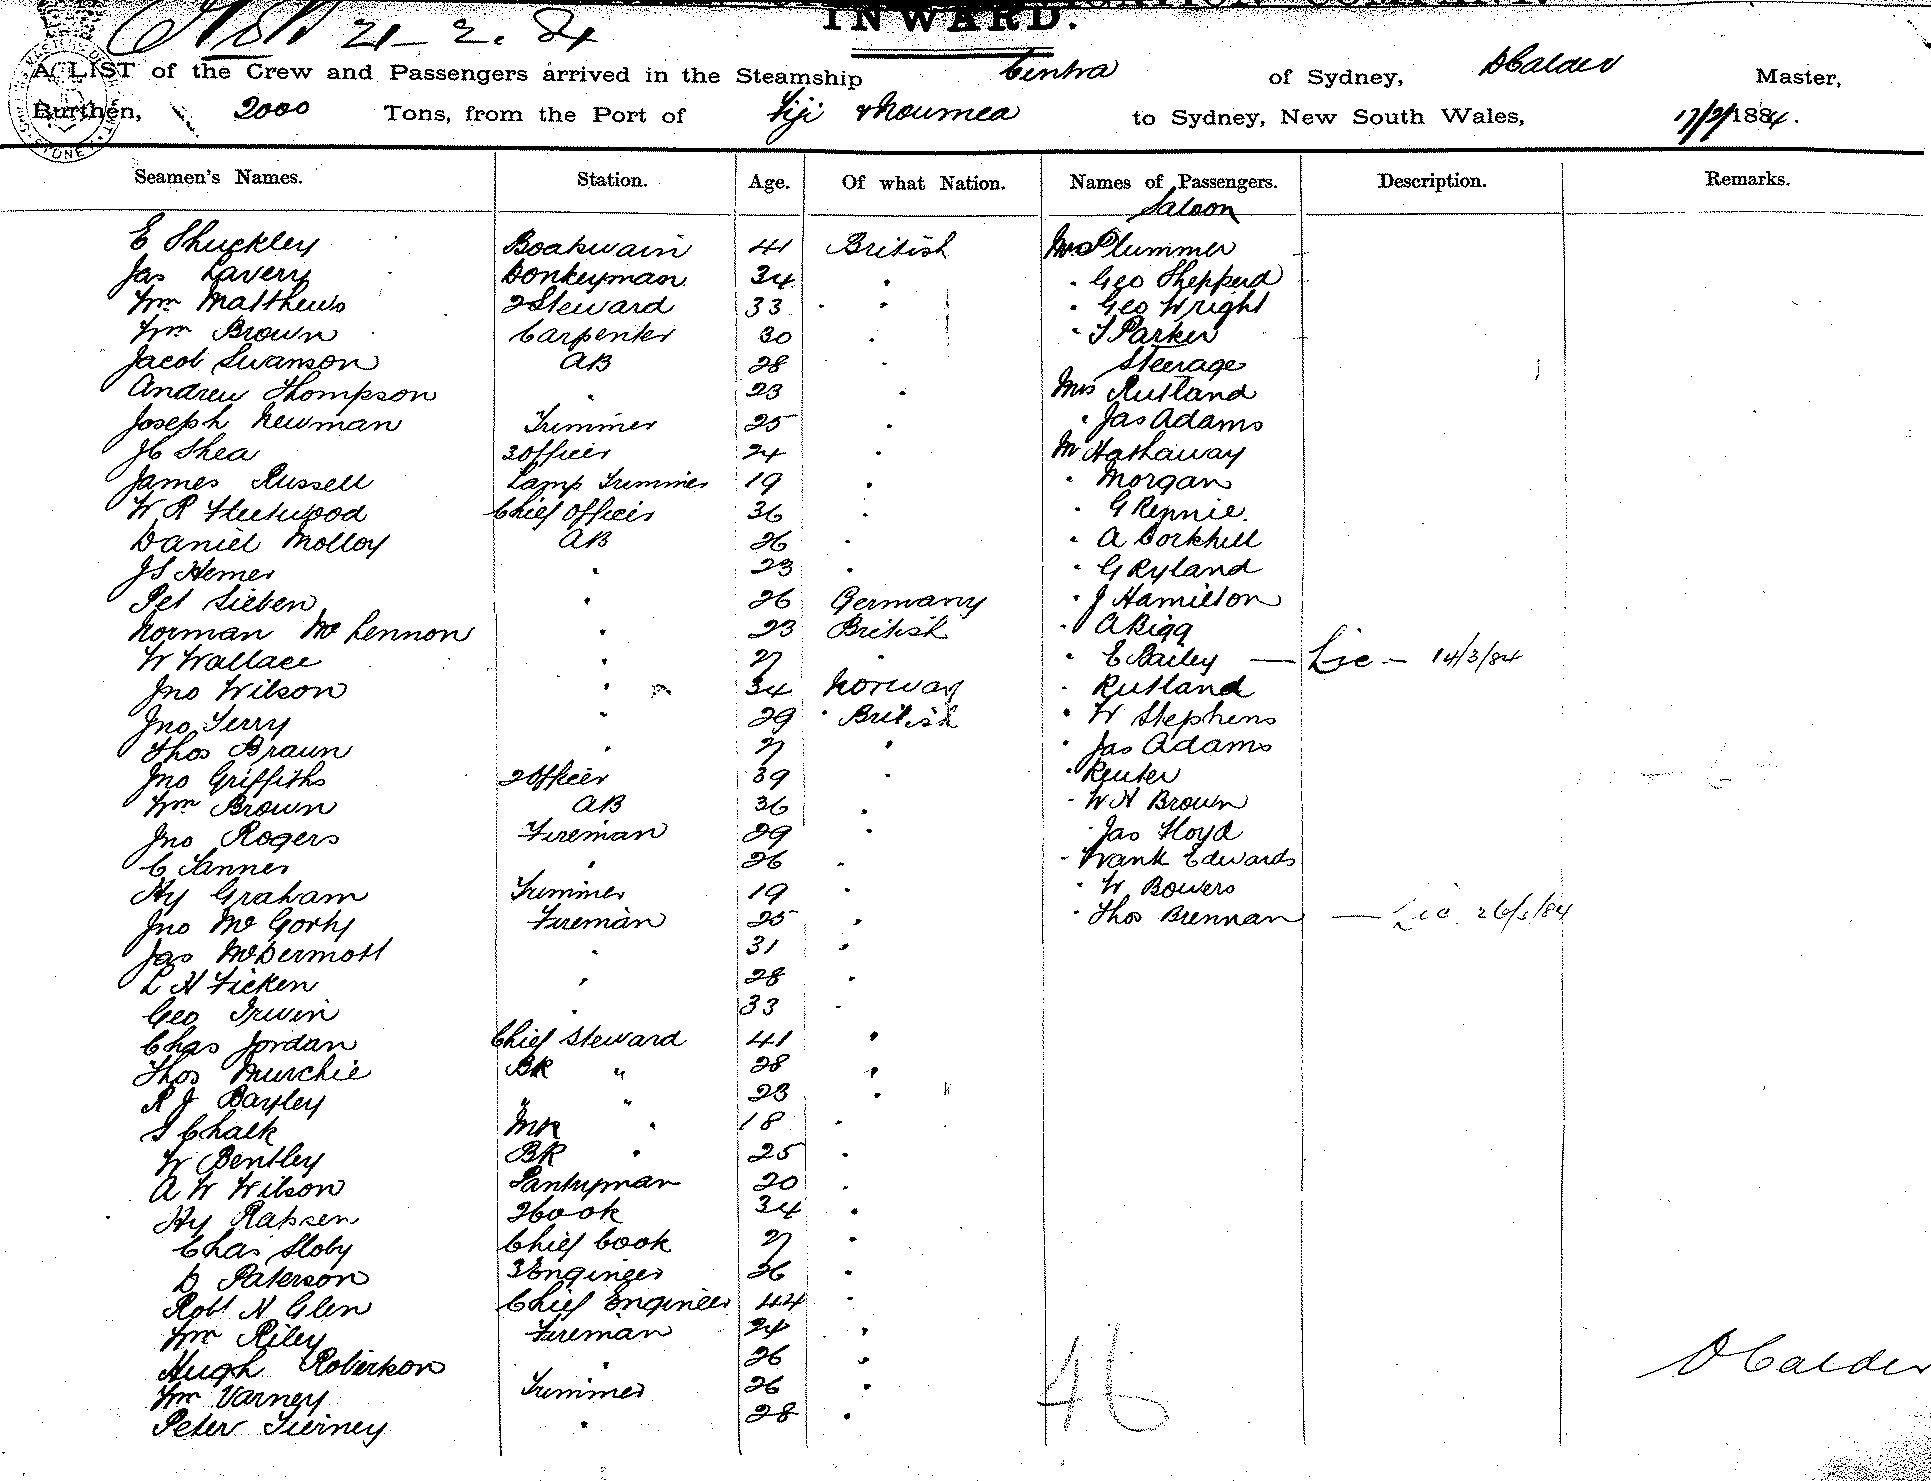 21-2.84
INWARD.
A LIST of the Crew and Passengers arrived in the Steamship Centra of Sydney, D Calder Master,
Burthen, 2000 Tons, from the Port of Fiji & Noumea to Sydney, New South Wales, 17/2/1884.
Seamen's Names. Station. Age. Of what Nation. Names of Passengers. Description. Remarks.
Saloon
E Shuckley Boatswain 41 British Mr Plummer
Jas Lavery Donkeyman 34 " " Geo Shepperd
Wm Matthews 2 Steward 33 " " Geo Wright
Wm Brown Carpenter 30 " " T Parker
Jacob Swanson AB 28 " Steerage
Andrew Thompson " 23 " Mrs Rutland
Joseph Newman Trimmer 25 " " Jas Adams
JC Shea 3 Officer 24 " Mr Hathaway
James Russell Lamp Trimmer 19 " " Morgan
W R Fleetwood Chief Officer 36 " " G Rennie
Daniel Molloy AB 26 " " A Corkhill
JS Hemer " 23 " " G Ryland
Pet Sieben " 26 Germany " J Hamilton
Norman McLennon " 23 British " A Bigg
W Wallace " 27 " " E Bailey — Lic — 14/3/84
Jno Wilson " 34 Norway " Rutland
Jno Terry " 29 British " W Stephens
Thos Braun " 27 " " Jas Adams
Jno Griffiths 2 Officer 39 " " Reuter
Wm Brown AB 36 " " W H Brown
Jno Rogers Fireman 29 " " Jas Floyd
C Tanner " 26 " " Frank Edwards
Hy Graham Trimmer 19 " " W Bowers
Jno McGorky Fireman 25 " " Thos Brennan — Lic 26/3/84
Jas McDermott " 31 "
L H Ficken " 28 "
Geo Irwin " 33 "
Chas Jordan Chief Steward 41 "
Thos Murchie BR " 28 "
R J Bayley " " 23 "
S Chalk MR " 18 "
W Bentley BR " 25 "
A W Wilson Pantryman 20 "
Hy Rapsen 2 Cook 34 "
Chas Sloby Chief Cook 27 "
D Paterson 3 Engineer 26 "
Robt N Glen Chief Engineer 44 "
Wm Riley Fireman 24 "
Hugh Robertson " 26 "
Wm Varney Trimmer 26 "
Peter Tierney " 28 "
46
D Calder